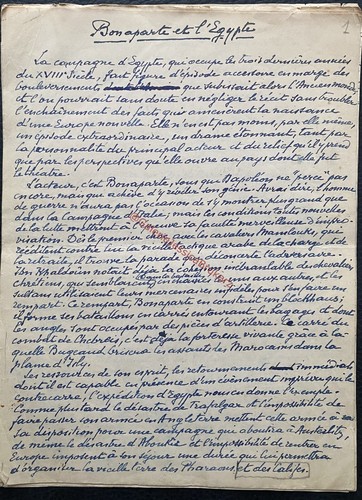 1
Bonaparte et l'Egypte
La campagne d'Egypte, qui occupe les trois dernières années
du XVIIIe Siècle, fait figure d'épisode accessoire en marge des
bouleversements que subissait alors l'Ancien monde,
et l'on pourrait sans doute en négliger le récit sans troubler
l'enchaînement des faits qui annoncèrent la naissance
d'une Europe nouvelle. Elle n'en est pas moins, par elle même,
un épisode extraordinaire, un drame étonnant, tant par
la personnalité du principal acteur et du relief qu'il y prend
que par les perspectives qu'elle ouvre au pays dont elle fut
le théâtre.
L'acteur, c'est Bonaparte, sous qui Napoléon ne "perce" pas
encore, mais qui achève d'y révéler son génie. A vrai dire, l'homme
de guerre n'aura pas l'occasion de s'y montrer plus grand que
dans la Campagne d'Italie; mais les conditions toutes nouvelles
de la lutte mettront à l'épreuve sa faculté merveilleuse d'impro-
visation. Dès le premier choc avec les cavaliers Mamelouks, que
répètent contre lui la vieille tactique arabe de la charge et de
la retraite, il trouve la parade qui déconcerte l'adversaire.
Ibn Khaldoûn notait déjà la cohésion inébranlable des chevaliers
chrétiens, qui semblaient
sultans
rempart. Ce rempart, Bonaparte en construit un blockhaus;
il forme ses bataillons en carrés entourant les bagages et dont
les angles sont occupés par des pièces d'artillerie. Le carré du
combat de Chebreïs, c'est déjà la forteresse vivante grâce à la-
quelle Bugeaud brisera les assauts des Marocains dans la
plaine d'Isly.
Les ressources de son esprit, les retournements immédiats
dont il est capable en présence d'un événement impérieux qui le
contrecarre, l'expédition d'Egypte nous en donne l'exemple.
Comme plus tard le désastre de Trafalgar et l'impossibilité de
faire passer son armée en Angleterre mettent cette armée à
sa disposition pour une campagne qui aboutira à Austerlitz,
de même le désastre d'Aboukir et l'impossibilité de rentrer en
Europe imposent à son séjour une durée qui lui permettra
d'organiser la vieille terre des Pharaons et des Califes.